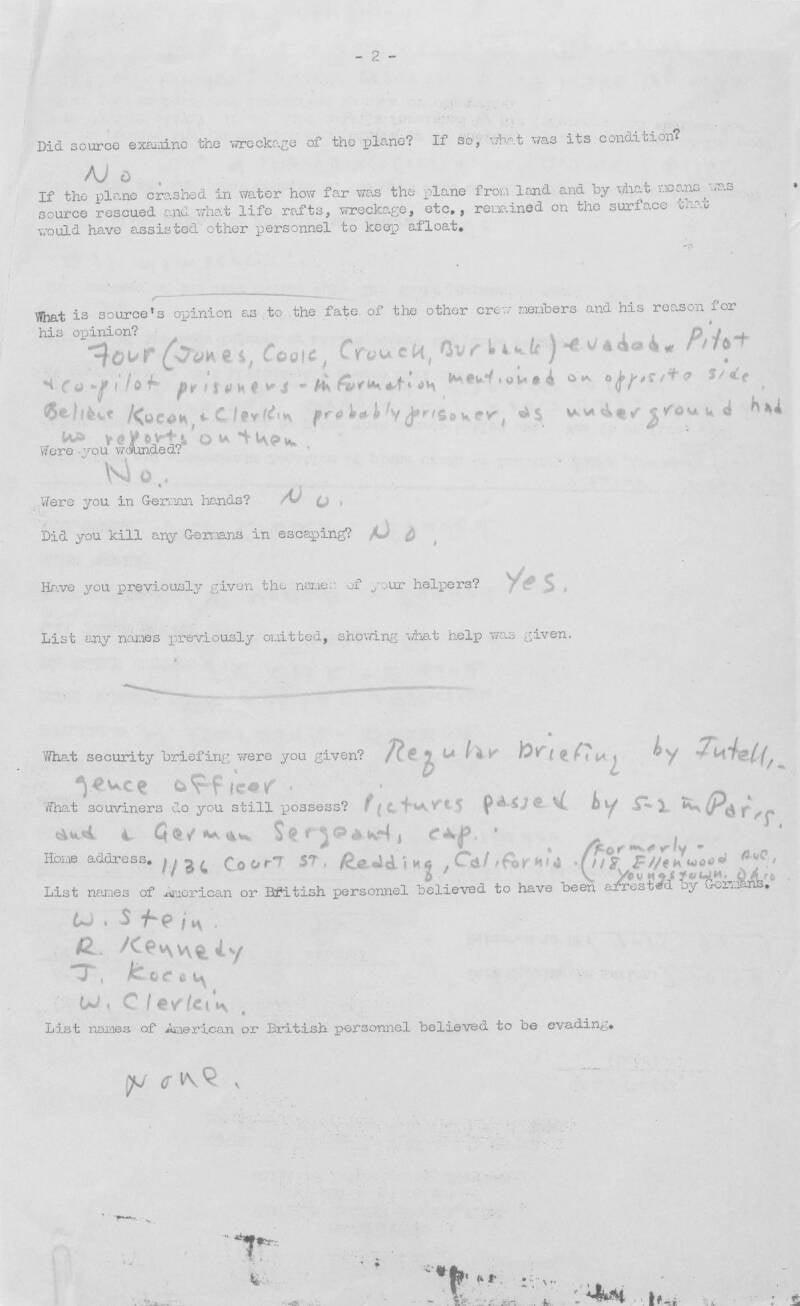 - 2 -
Did source examine the wreckage of the plane? If so, what was its condition?
No
If the plane crashed in water how far was the plane from land and by what means was
source rescued and what life rafts, wreckage, etc., remained on the surface that
would have assisted other personnel to keep afloat.
What is source's opinion as to the fate of the other crew members and his reason for
his opinion?
Four (Jones, Cook, Crouch, Burbank) - evaded. Pilot
+ co-pilot prisoners - information mentioned on opposite side.
Believe Kocon, & Clerkin probably prisoner, as underground had
no reports on them.
Were you wounded?
No.
Were you in German hands? No.
Did you kill any Germans in escaping? No.
Have you previously given the names of your helpers? Yes.
List any names previously omitted, showing what help was given.
What security briefing were you given? Regular briefing by Intelli-
gence officer.
What souviners do you still possess? Pictures passed by S-2 in Paris,
and a German Sergeant, cap.
Home address. 1136 Court St. Redding, California. (formerly -
118 Ellenwood Ave.,
Youngstown, Ohio
List names of American or British personnel believed to have been arrested by Germans.
W. Stein.
R. Kennedy
J. Kocon
W. Clerkin.
List names of American or British personnel believed to be evading.
None.